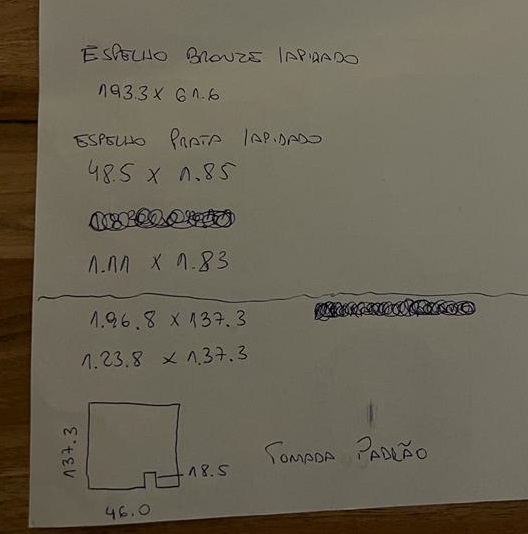 ESPELHO BRONZE LAPIDADO
193.3 X 61.6
ESPELHO PRATA LAPIDADO
48.5 X 1.85
1.11 X 1.83
1.96.8 X 137.3
1.23.8 X 1.37.3
137.3
18.5
TOMADA PADRÃO
46.0